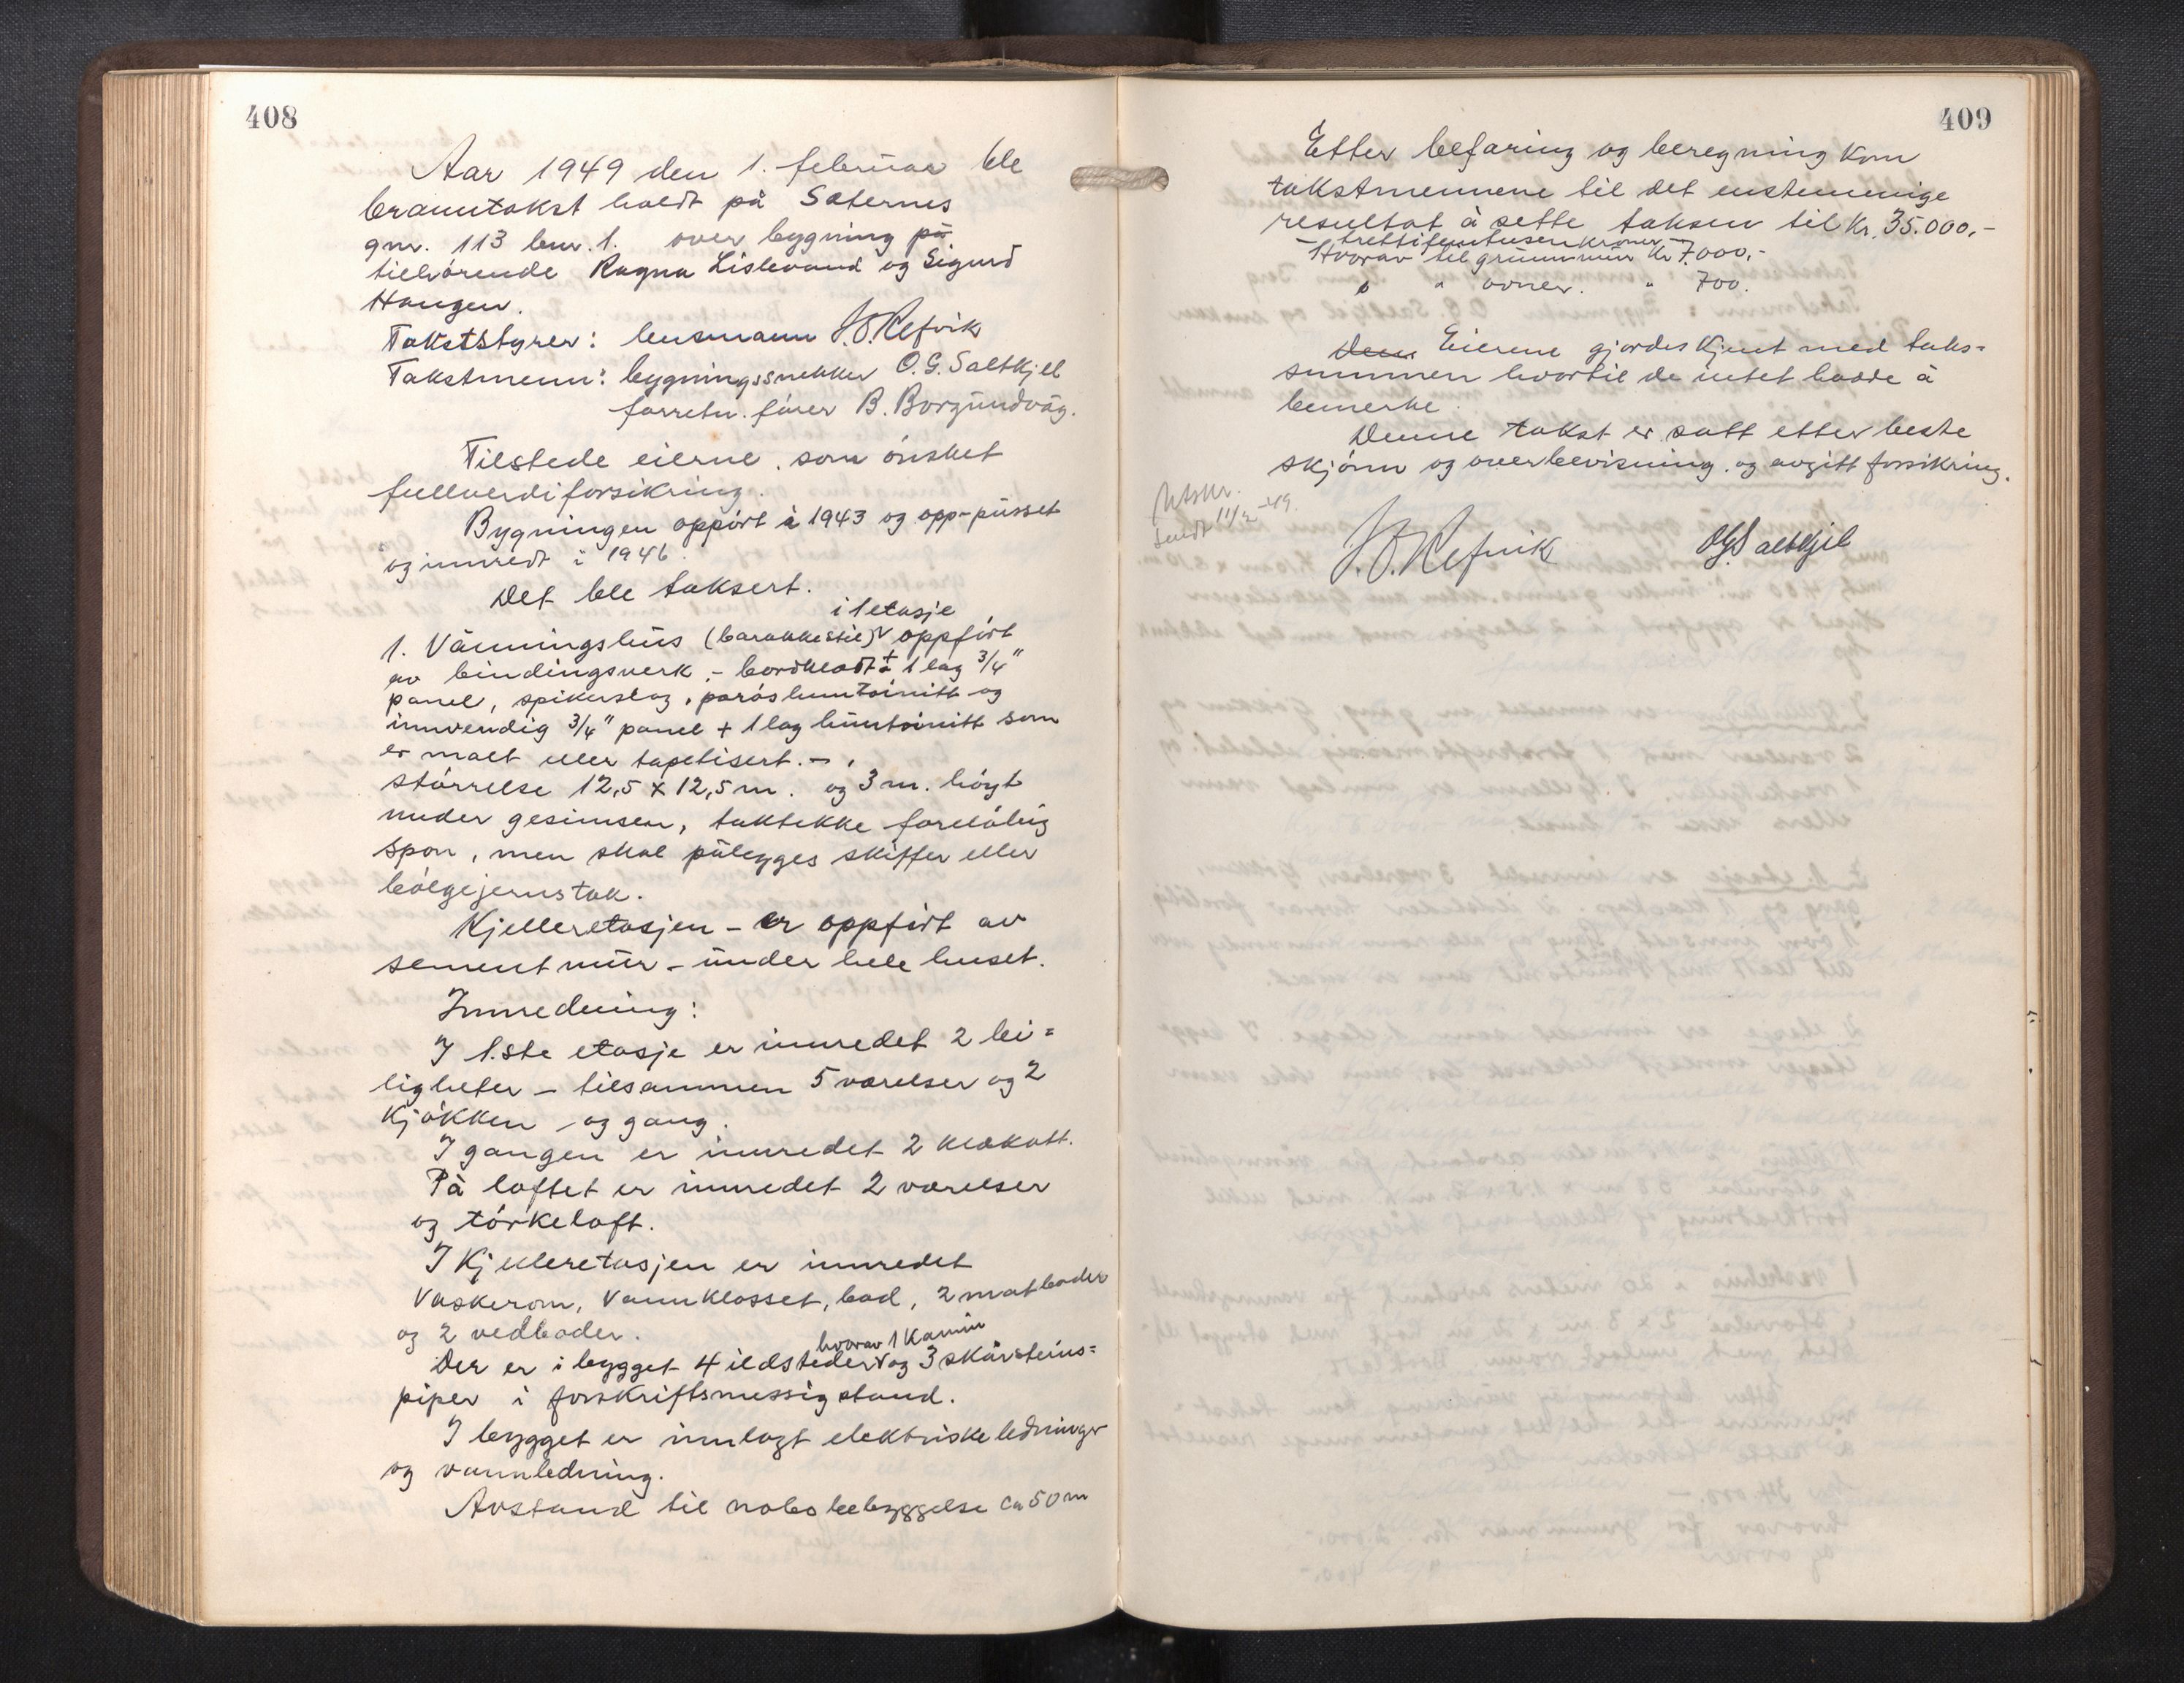 408
Aar 1949 den 1. februar ble
branntakst holdt på Sæternes
gnr. 113 bnr. 1. over bygning på
tilhörende Ragna Listevand og Sigurd
Haugen.
Takststyrer: lensmann J.O. Refvik
Takstmenn: bygningssnekker O.G. Saltkjel
forretn. förer B. Borgundvåg.
Tilstede eierne, som önsket
fullverdiforsikring.
Bygningen oppört i 1943 og opp-pusset
og innredt i 1946.
Det ble taksert.
i 1 etasje
1. Våningshus (barakkestil) oppfört
av bindingsverk, - bordkledt + 1 lag 3/4"
panel, spikerslag, porös huntonitt og
innvendig 3/4" panel + 1 lag huntonitt som
er malt eller tapetisert. -
störrelse 12,5 x 12,5 m. og 3 m. höyt
under gesimsen, taktekke forelöbig
spon, men skal pålegges skiffer eller
bölgejernstak.
Kjelleretasjen - er oppfört av
sement mur - under hele huset.
Innredning:
I 1.ste etasje er innredet 2 lei=
ligheter - tilsammen 5 værelser og 2
kjökken - og gang.
I gangen er innredet 2 klækott.
På loftet er innredet 2 værelser
og törkeloft.
I Kjelleretasjen er innredet
Vaskerom, Vannklosset, bad, 2 matboder
og 2 vedboder.
hvorav 1 Kamin
Der er i bygget 4 ildsteder og 3 skårsteins=
piper i forskriftsmessig stand.
I bygget er innlagt elektriske ledninger
og vannledning.
Avstand til nabobebyggelse ca 50 m
409
Etter befaring og beregning kom
takstmennene til det enstemmige
resultat å sette taksen til Kr. 35.000,-
- trettifemtusenkroner -
Hvorav til grunnmur Kr 7.000,-
" " ovner. " 700.
Den Eierne gjordes kjent med taks=
summen hvortil de intet hadde å
bemerke.
Denne takst er satt etter beste
skjönn og overbevisning. og avgitt forsikring.
Utskr.
sendt 11/2 -49.
J.O. Refvik
O.G. Saltkjel